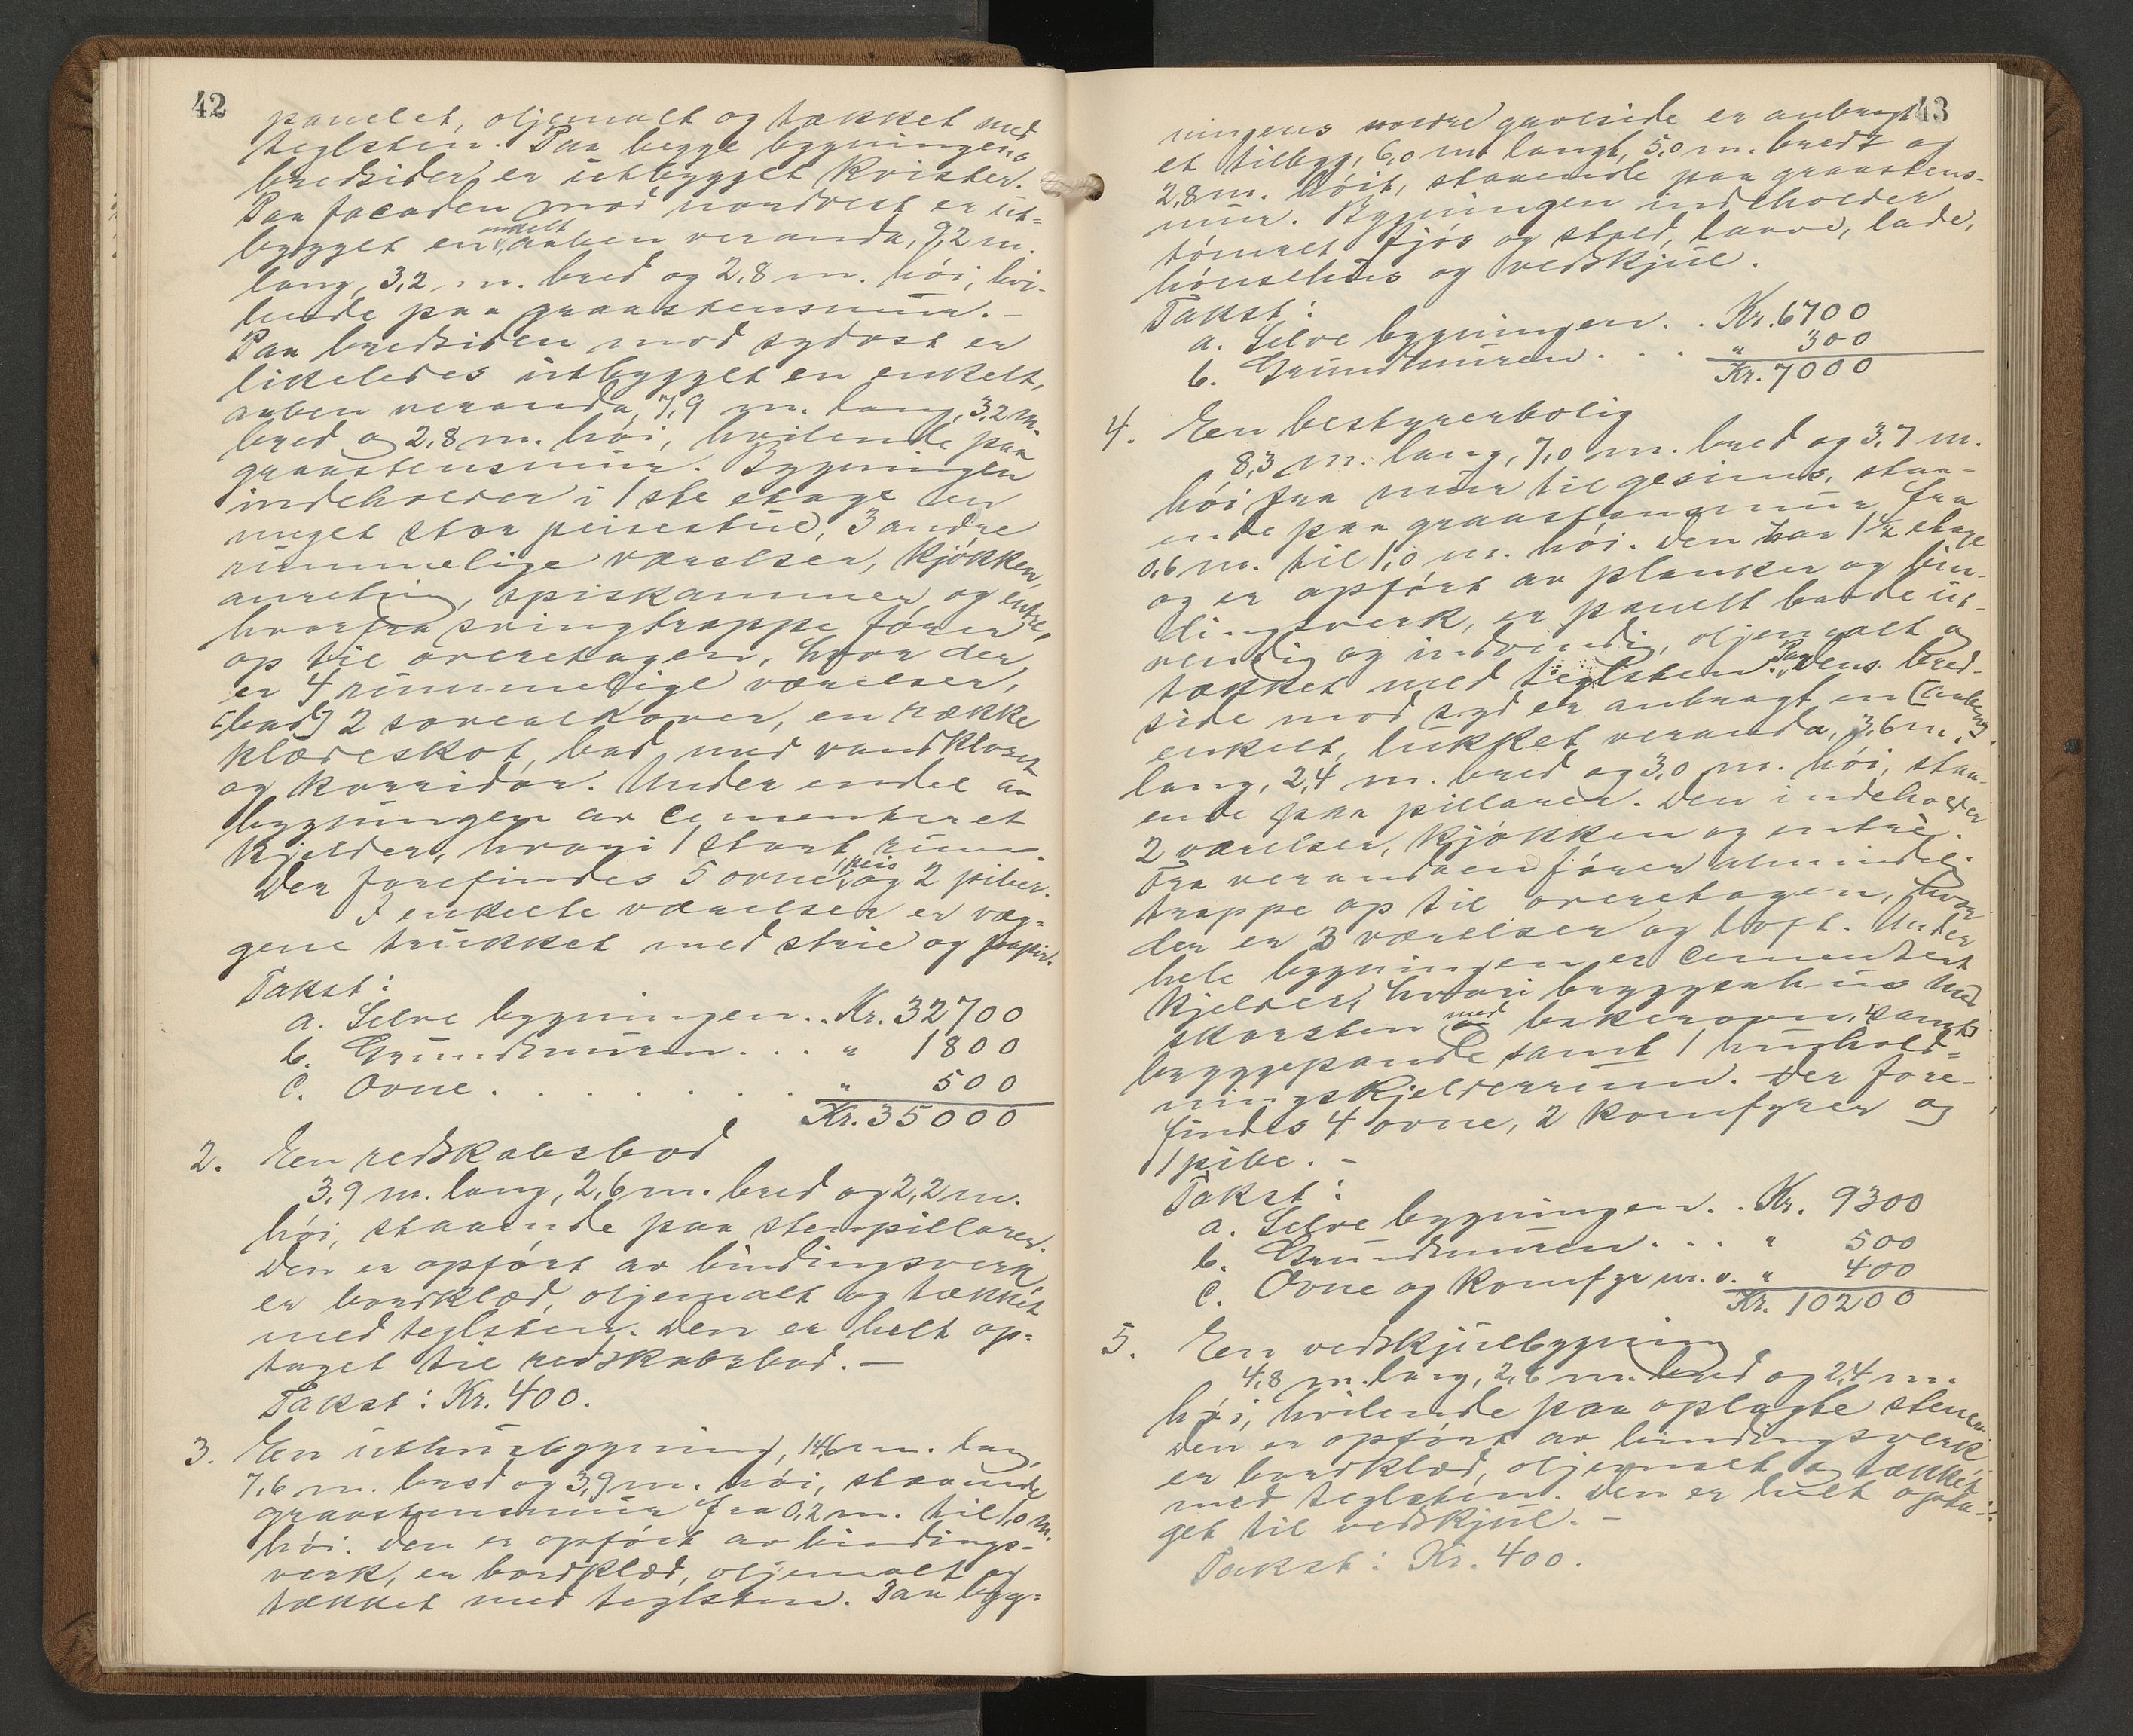 42
panelet, oljemalt og tækket med
teglsten. Paa begge bygningens
bredsider er utbygget kvister.
Paa facaden mod nordvest er ut-
bygget en enkelt aaben veranda, 9,2 m.
lang, 3,2 m. bred og 2,8 m. høi, hvi-
lende paa graastensmur. –
Paa bredsiden mod sydost er
likeledes utbygget en enkelt,
aaben veranda, 7,9 m. lang, 3,2 m.
bred og 2,8 m. høi, hvilende paa
graastensmur. Bygningen
indeholder i 1ste etage en
meget stor peisestue, 3 andre
rummelige værelser, kjøkken,
anretning, spiskammer og entre,
hvorfra svingtrappe fører
op til overetagen, hvor der
er 4 rummelige værelser,
[bad] 2 sovealkover, en række
klædeskot, bad med vandkloset
og korridor. Under endel av
bygningen er cementeret
kjelder, hvori 1 stort rum.
Der forefindes 5 ovne, 1 peis og 2 piber.
I enkelte værelser er væg-
gene trukket med strie og papir.
Takst:
a. Selve bygningen . . Kr. 32700
b. Grundmuren . . . " 1800
c. Ovne . . . . . . . " 500
Kr. 35000
2. En redskabsbod
3,9 m. lang, 2,6 m. bred og 2,2 m.
høi, staaende paa stenpillarer.
Den er opført av bindingsverk,
er bordklæd, oljemalt og tækket
med teglsten. Den er helt op-
taget til redskabsbod. –
Takst: Kr. 400.
3. En uthusbygning, 14,6 m. lang,
7,6 m. bred og 3,9 m. høi, staaende
graastensmur fra 0,2 m. til 1,0 m.
høi. Den er opført av bindings-
verk, er bordklæd, oljemalt og
tækket med teglsten. Paa byg-
43
ningens nordre gavlside er anbragt
et tilbygg, 6,0 m. langt, 5,0 m. bredt og
2,8 m. høit, staaende paa graastens-
mur. Bygningen indeholder
tømret fjøs og stald, laave, lade,
hønsehus og vedskjul.
Takst:
a. Selve bygningen . . Kr. 6700
b. Grundmuren . . . " 300
Kr. 7000
4. En bestyrerbolig
8,3 m. lang, 7,0 m. bred og 3,7 m.
høi fra mur til gesims, staa-
ende paa graastensmur fra
0,6 m. til 1,0 m. høi. Den har 1 ½ etage
og er opført av planker og bin-
dingsverk, er panelt baade ut-
vendig og indvendig, oljemalt og
tækket med teglsten. Paa dens bred-
side mod syd er anbragt en [aaben]
enkelt, lukket veranda, 3,6 m.
lang, 2,4 m. bred og 3,0 m. høi, staa-
ende paa pillarer. Den indeholder
2 værelser, kjøkken og entré.
Fra verandaen fører almindelig
trappe op til overetagen, hvor
der er 3 værelser og loft. Under
hele bygningen er cementert
kjelder, hvori bryggerhus med
skorsten med bakerovn, [samt]
bryggepande samt 1 hushold-
ningskjelderrum. Der fore-
findes 4 ovne, 2 komfyrer og
1 pibe. –
Takst:
a. Selve bygningen . . Kr. 9300
b. Grundmuren . . . " 500
c. Ovne og komfyr m. v. " 400
Kr. 10200
5. En vedskjulbygning
4,8 m. lang, 2,6 m. bred og 2,4 m.
høi, hvilende paa oplagte stener.
Den er opført av bindingsverk
er bordklæd, oljemalt og tækket
med teglsten. Den er helt opta-
get til vedskjul. –
Takst: Kr. 400.